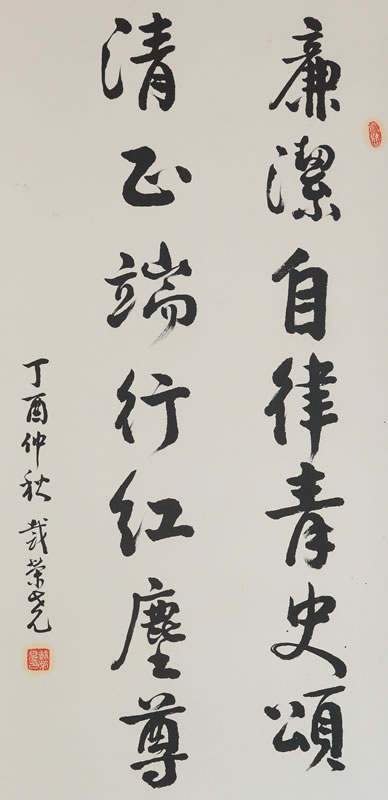 廉潔自律青史頌
清正端行红塵尊
丁酉仲秋 戴荣尧